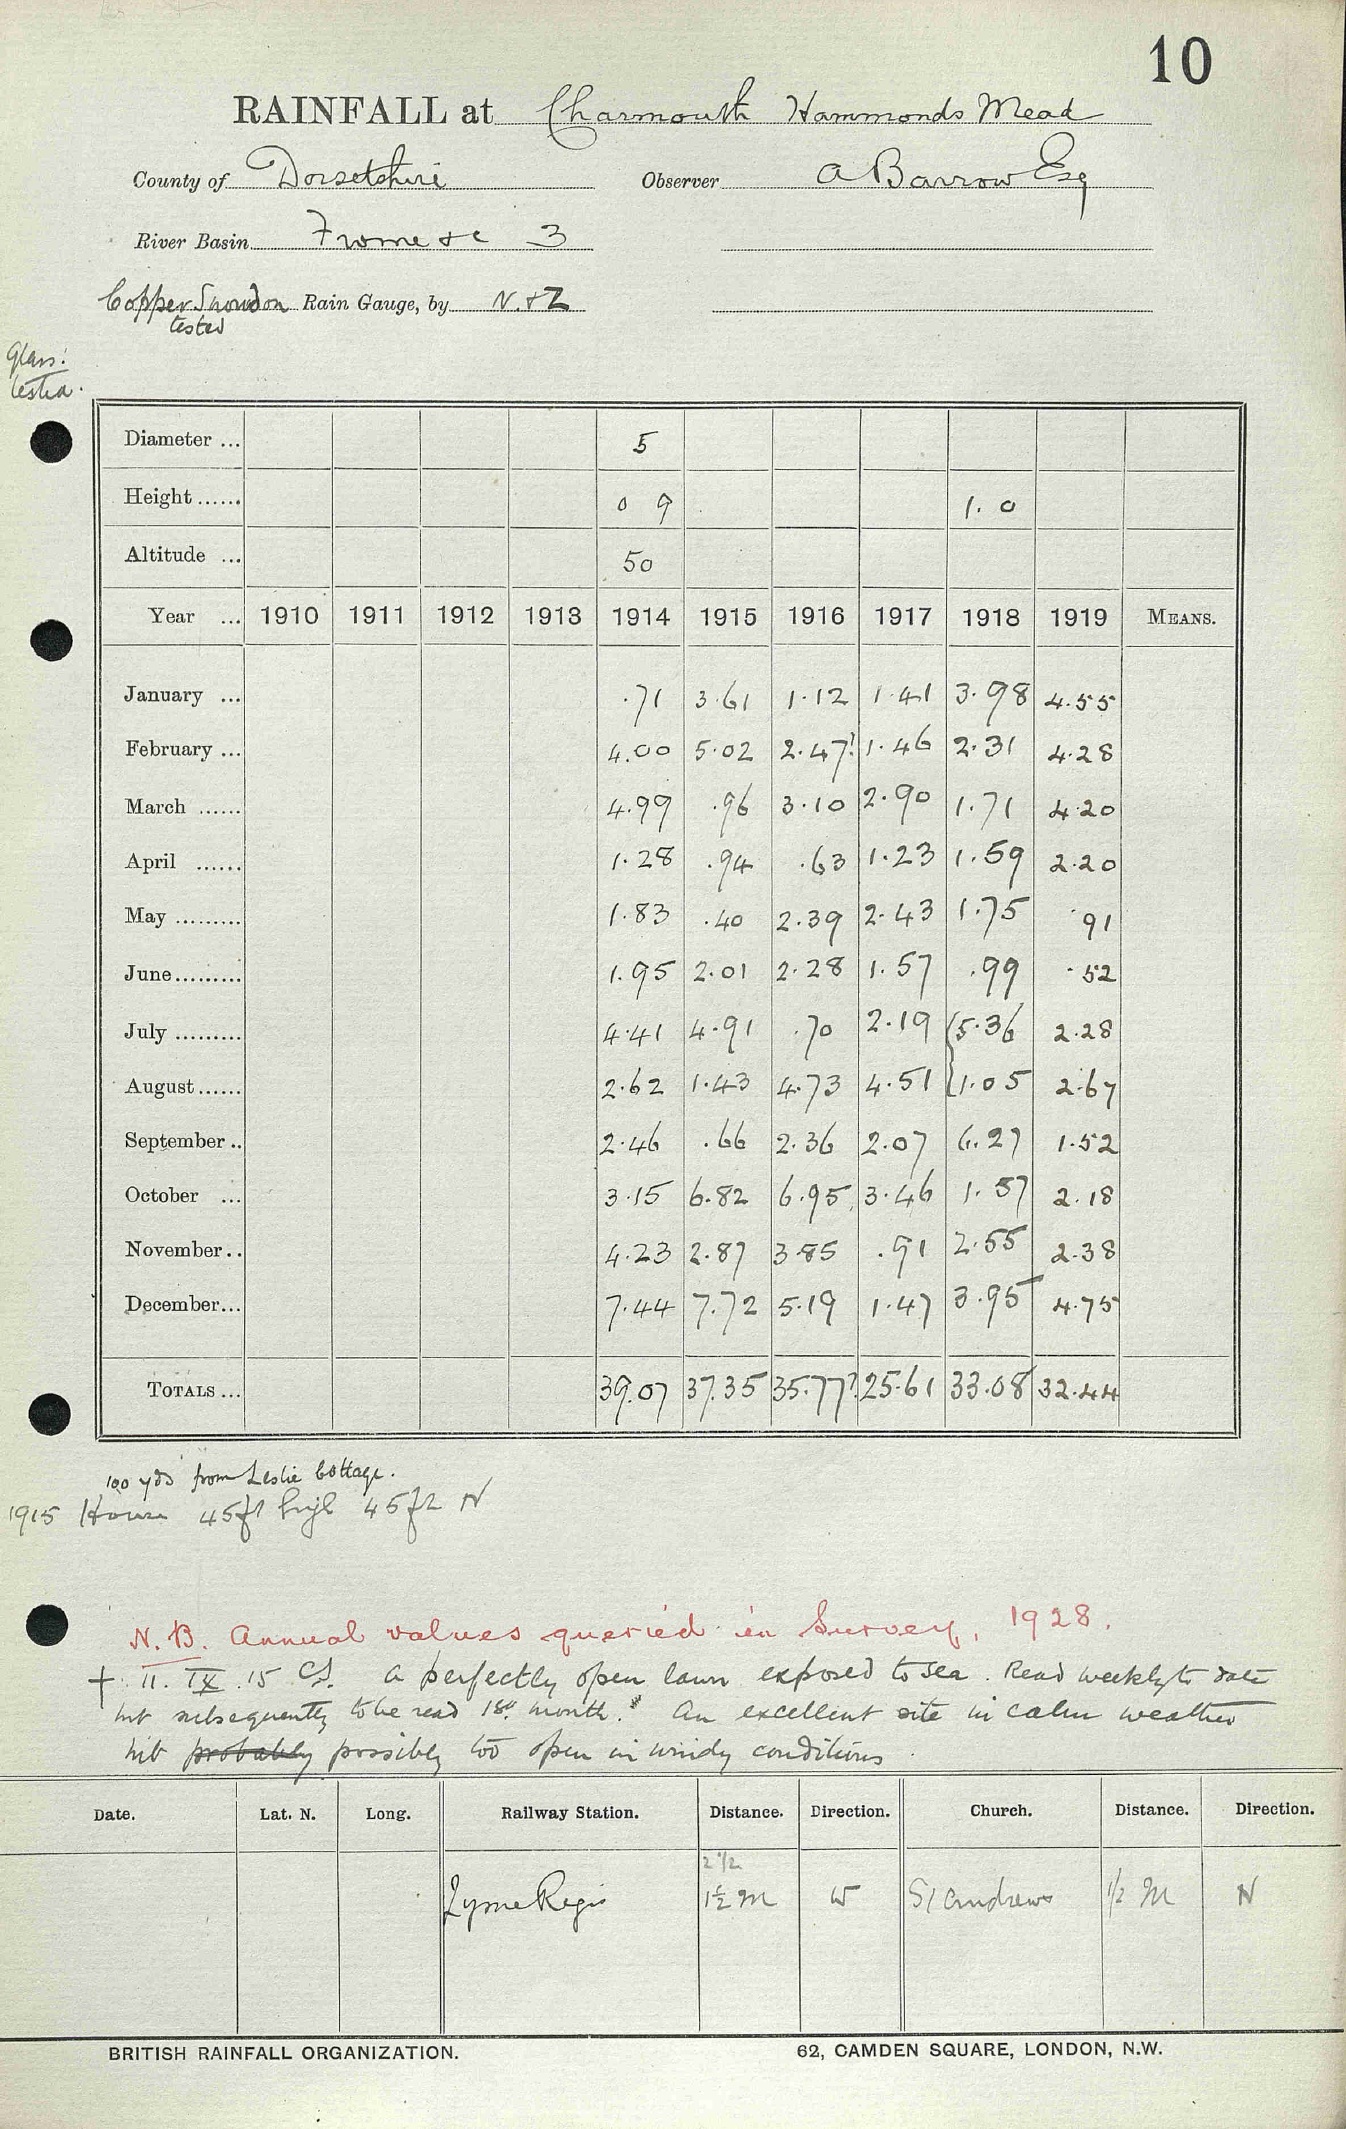 10
RAINFALL at Charmouth Hammonds Mead
County of Dorsetshire Observer A Barrow Esq
River Basin Frome &c 3
Copper Snowdon Rain Gauge, by N.&Z
tested
Glass:
tested.
Diameter ... 5
Height ...... 0 9 1. 0
Altitude ... 50
Year ... 1910 1911 1912 1913 1914 1915 1916 1917 1918 1919 MEANS.
January ... .71 3.61 1.12 1.41 3.98 4.55
February ... 4.00 5.02 2.47? 1.46 2.31 4.28
March ...... 4.99 .96 3.10 2.90 1.71 4.20
April ...... 1.28 .94 .63 1.23 1.59 2.20
May ......... 1.83 .40 2.39 2.43 1.75 .91
June......... 1.95 2.01 2.28 1.57 .99 .52
July ......... 4.41 4.91 .70 2.19 {5.36 2.28
August...... 2.62 1.43 4.73 4.51 {1.05 2.67
September .. 2.46 .66 2.36 2.07 6.27 1.52
October ... 3.15 6.82 6.95 3.46 1.57 2.18
November.. 4.23 2.87 3.85 .91 2.55 2.38
December... 7.44 7.72 5.19 1.47 3.95 4.75
TOTALS ... 39.07 37.35 35.77? 25.61 33.08 32.44
100 yds from Leslie Cottage.
1915 House 45ft high 45ft N
N.B. Annual values queried in Survey, 1928.
+ 11. IX .15 CS. A perfectly open lawn exposed to sea. Read weekly to date
but subsequently to be read 1st month. An excellent site in calm weather
but probably possibly too open in windy conditions
Date. Lat. N. Long. Railway Station. Distance. Direction. Church. Distance. Direction.
2 1/2
Lyme Regis 1½ M W St Andrews 1/2 M N
BRITISH RAINFALL ORGANIZATION. 62, CAMDEN SQUARE, LONDON, N.W.